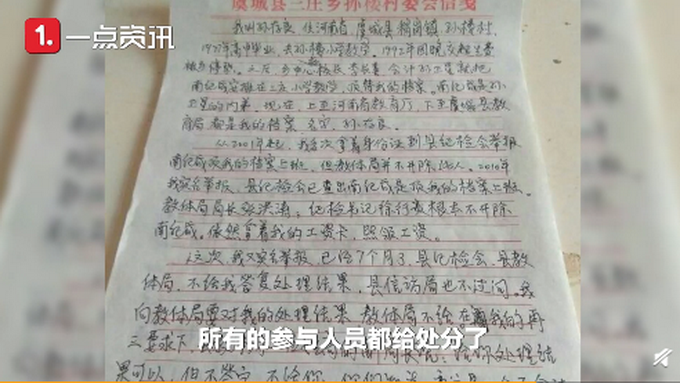 1. 一点资讯
虞城县三庄乡孙楼村委会信笺
我叫孙存良 住河南省虞城县稍岗镇孙楼村
1977年高中毕业,去孙楼小学教学,1992年因晚
被乡停职。之后,乡中心校长李长
南纪成安排在三庄小学教学,顶替我的档案。南纪成是孙
卫星的内弟。现在,上至河南省教育厅,下至虞城县教
育局 都是我的档案 名字,孙存良。
从2001年起,我多次拿着身份证到县纪检会举报
南纪成顶我的档案上班,但教体局并不开除此人。2010年
我实名举报,县纪检会已查出南纪成是顶我的档案上班。
教体局局长张洪涛,纪检书记徐行义根本不开除
南纪成。依然拿着我的工资卡,照领工资。
这次,我又实名举报,已经7个月了,县纪检会,县教
体局,不给我答复处理结果,县信访局也不过问。我
向教体局要对我的处理结果 教体局不给 在我的再
三要求下
果可以,但不签字 不给你
所有的参与人员都给处分了